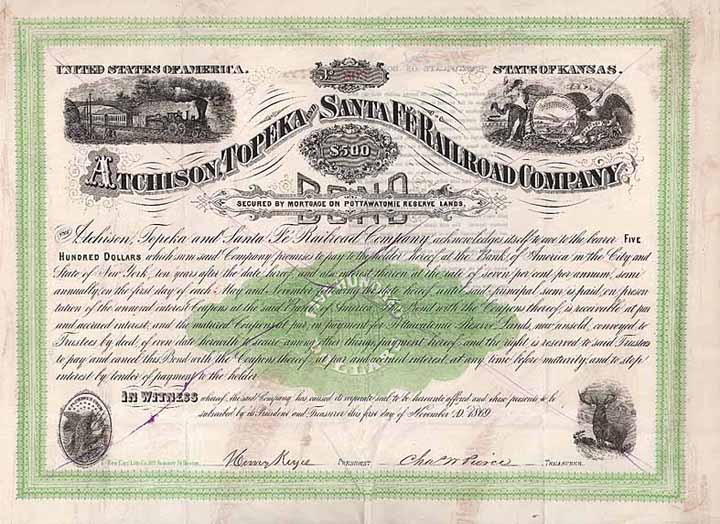 UNITED STATES OF AMERICA.
STATE OF KANSAS.
ATCHISON, TOPEKA AND SANTA FÉ RAILROAD COMPANY
$500
BOND
SECURED BY MORTGAGE ON POTTAWATOMIE RESERVE LANDS.
THE Atchison, Topeka and Santa Fé Railroad Company acknowledges itself to owe to the bearer FIVE
HUNDRED DOLLARS which sum said Company promises to pay to the holder hereof at the Bank of America in the City and
State of New York, ten years after the date hereof, and also interest thereon at the rate of seven per cent per annum, semi
annually, on the first day of each May and November ensuing the date hereof until said principal sum is paid, on presen-
tation of the annexed interest Coupons at the said Bank of America. This Bond with the Coupons thereof, is receivable at par
and accrued interest, and the matured Coupons at par, in payment for Pottawatomie Reserve Lands, now unsold, conveyed to
Trustees by deed, of even date herewith to secure among other things, payment hereof, and the right is reserved to said Trustees
to pay and cancel this Bond with the Coupons thereof at par and accrued interest, at any time before maturity, and to stop
interest by tender of payment to the holder
FIVE HUNDRED
DOLLARS
IN WITNESS whereof, the said Company has caused its corporate seal to be hereunto affixed and these presents to be
subscribed by its President and Treasurer this first day of November A.D. 1869
Henry Keyes PRESIDENT. Chas W Pierce TREASURER.